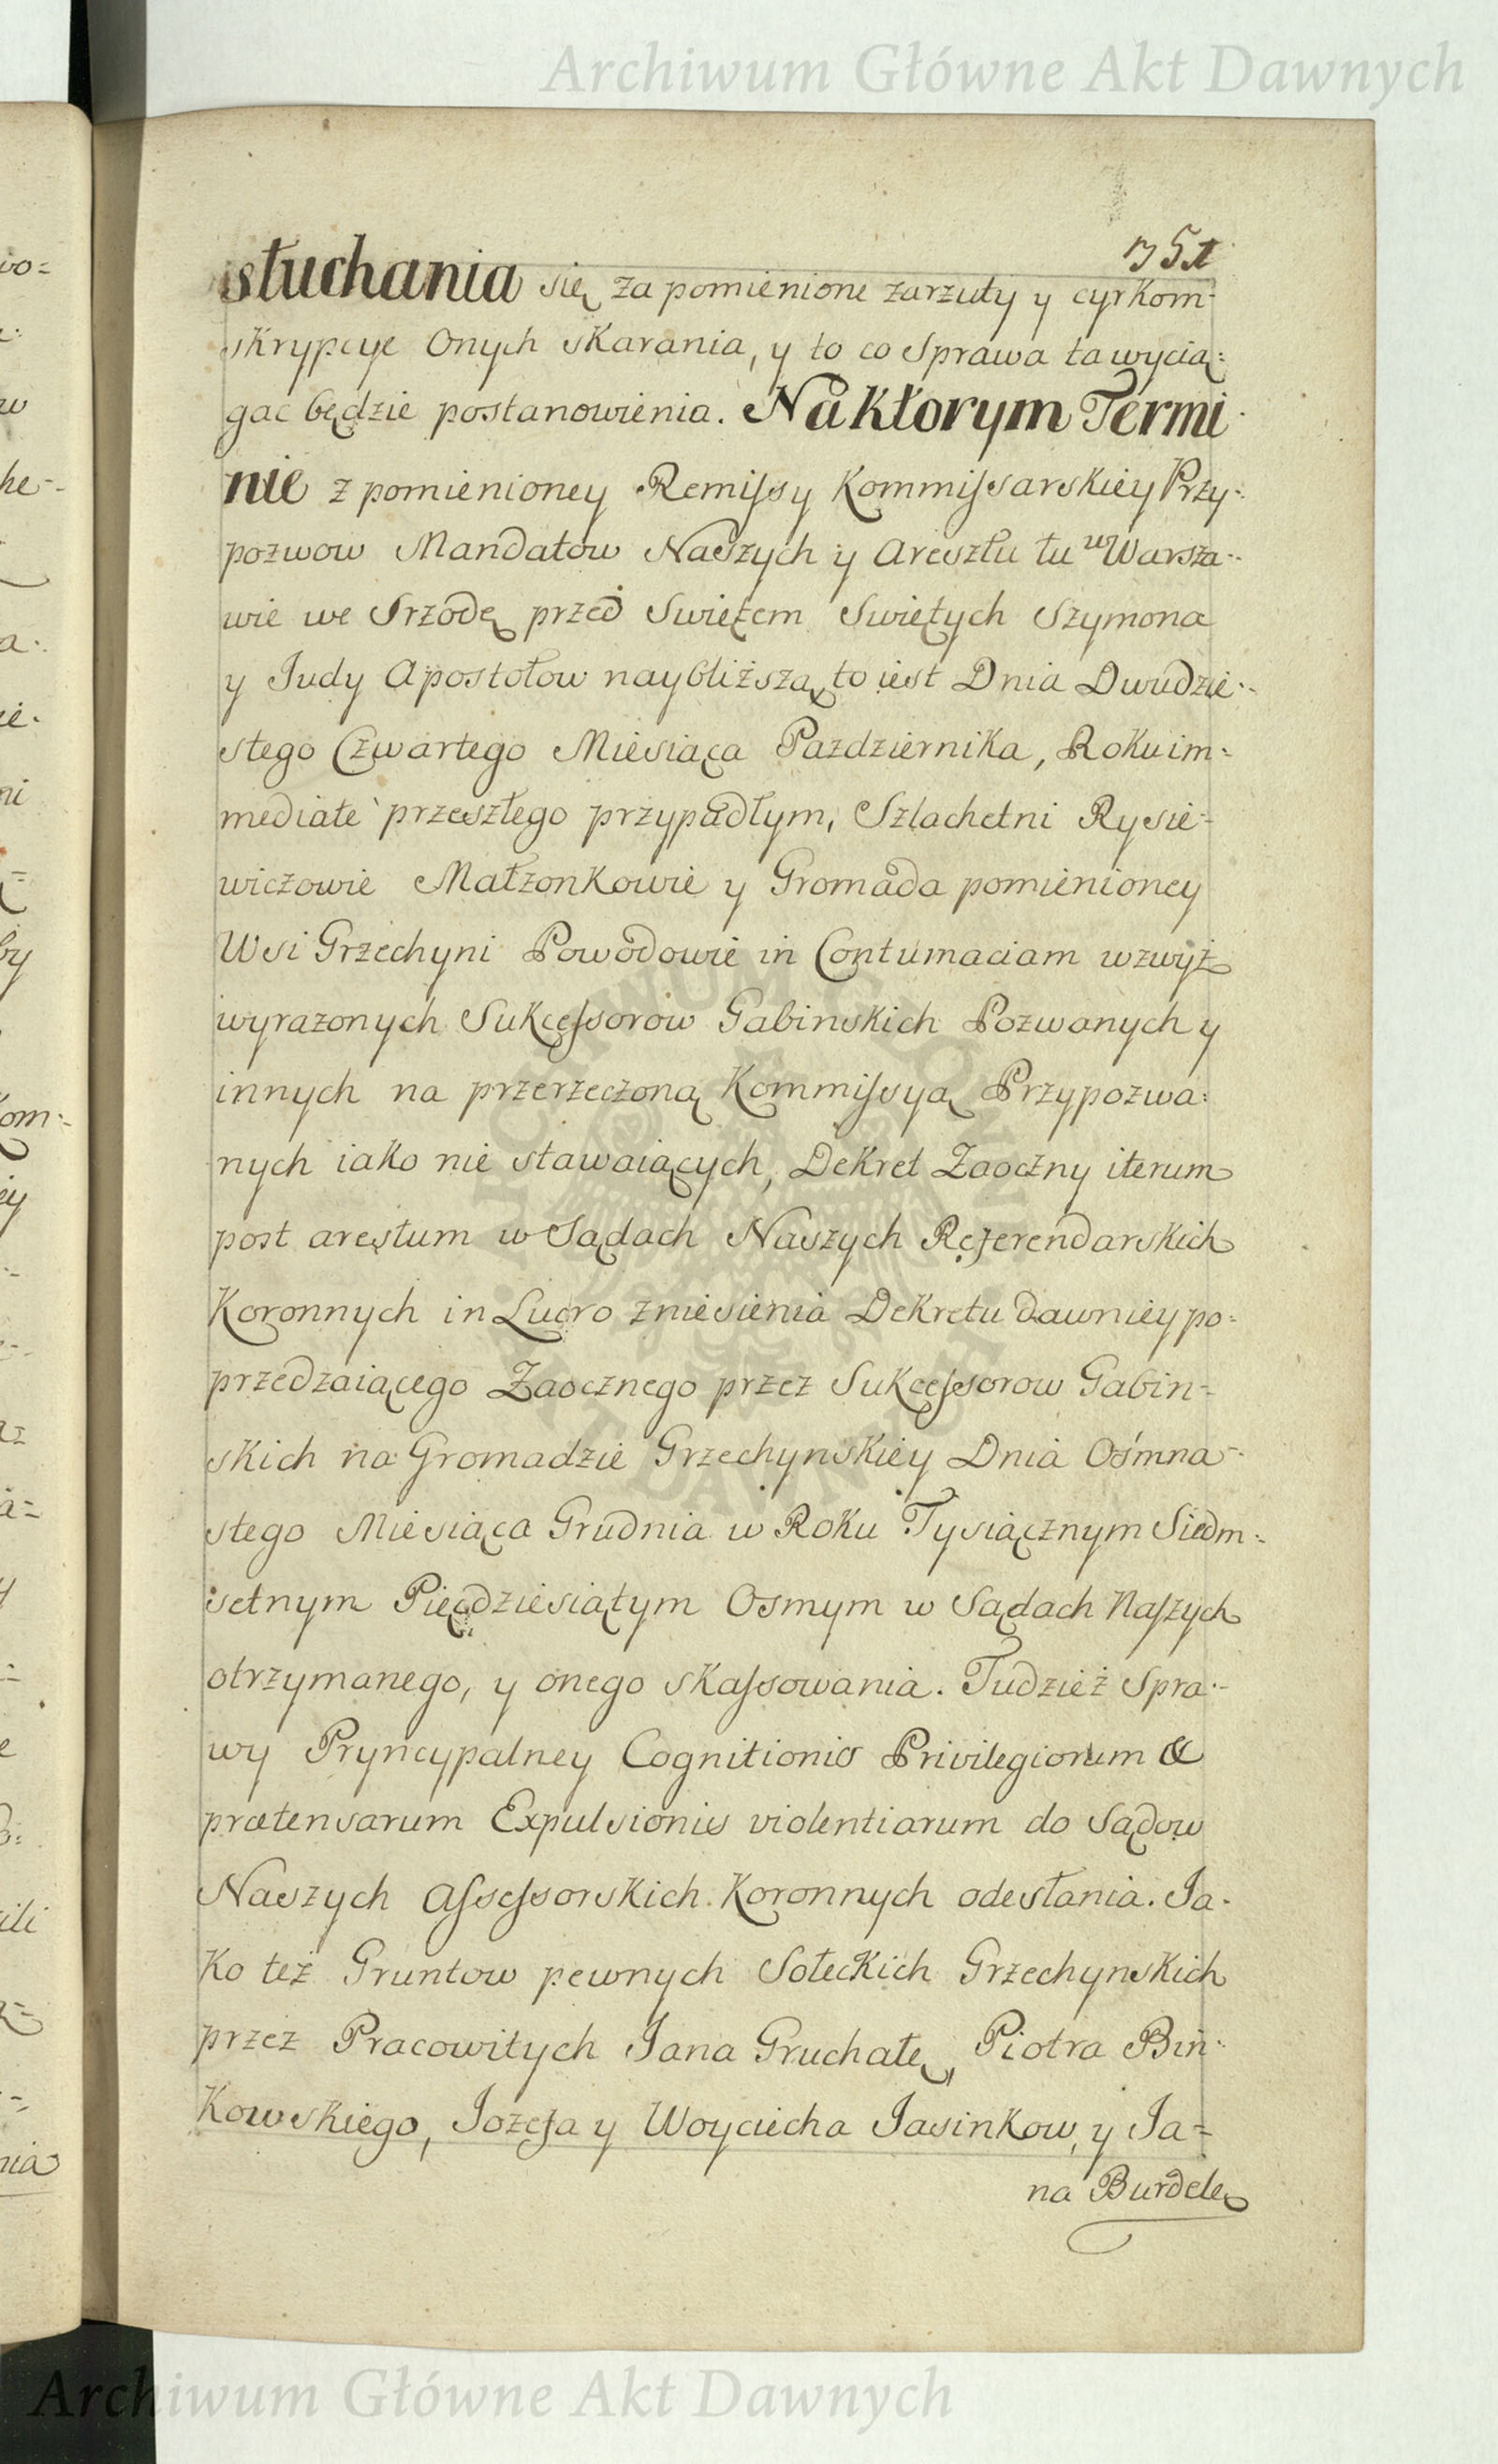 Archiwum Główne Akt Dawnych
351
słuchania się za pomienione zarzuty y cyrkom-
skrypcye Onych skarania, y to co Sprawa ta wycią-
gac będzie postanowienia. Na ktorym Termi-
nie z pomienioney Remissy Kommissarskiey Przy-
pozwow Mandatow Naszych y Aresztu tu w Warsza-
wie we Srzodę przed Swiętem Swiętych Szymona
y Judy Apostołow naybliższą to iest Dnia Dwudzie-
stego Czwartego Miesiąca Pazdziernika, Roku im-
mediate przeszłego przypadłym, Szlachetni Rysie-
wiczowie Małzonkowie y Gromada pomienioney
Wsi Grzechyni Powodowie in Contumaciam wzwyż
wyrazonych Sukcessorow Gabinskich Pozwanych y
innych na przerzeczoną Kommissyą Przypozwa-
nych iako nie stawaiących, Dekret Zaoczny iterum
post arestum w Sądach Naszych Referendarskich
Koronnych in Lucro zniesienia Dekretu dawniey po-
przedzaiącego Zaocznego przez Sukcessorow Gabin-
skich na Gromadzie Grzechynskiey Dnia Ośmna-
stego Miesiąca Grudnia w Roku Tysiącznym Siedm-
setnym Pięcdziesiątym Osmym w Sądach Naszych
otrzymanego, y onego skassowania. Tudzież Spra-
wy Pryncypalney Cognitionis Privilegiorum &
prætensarum Expulsionis violentiarum do Sądow
Naszych Assessorskich Koronnych odesłania. Ja-
ko też Gruntow pewnych Sołeckich Grzechynskich
przez Pracowitych Jana Gruchałę, Piotra Bin-
kowskiego, Jozefa y Woyciecha Jasinkow, y Ja-
na Burdelę
Archiwum Główne Akt Dawnych